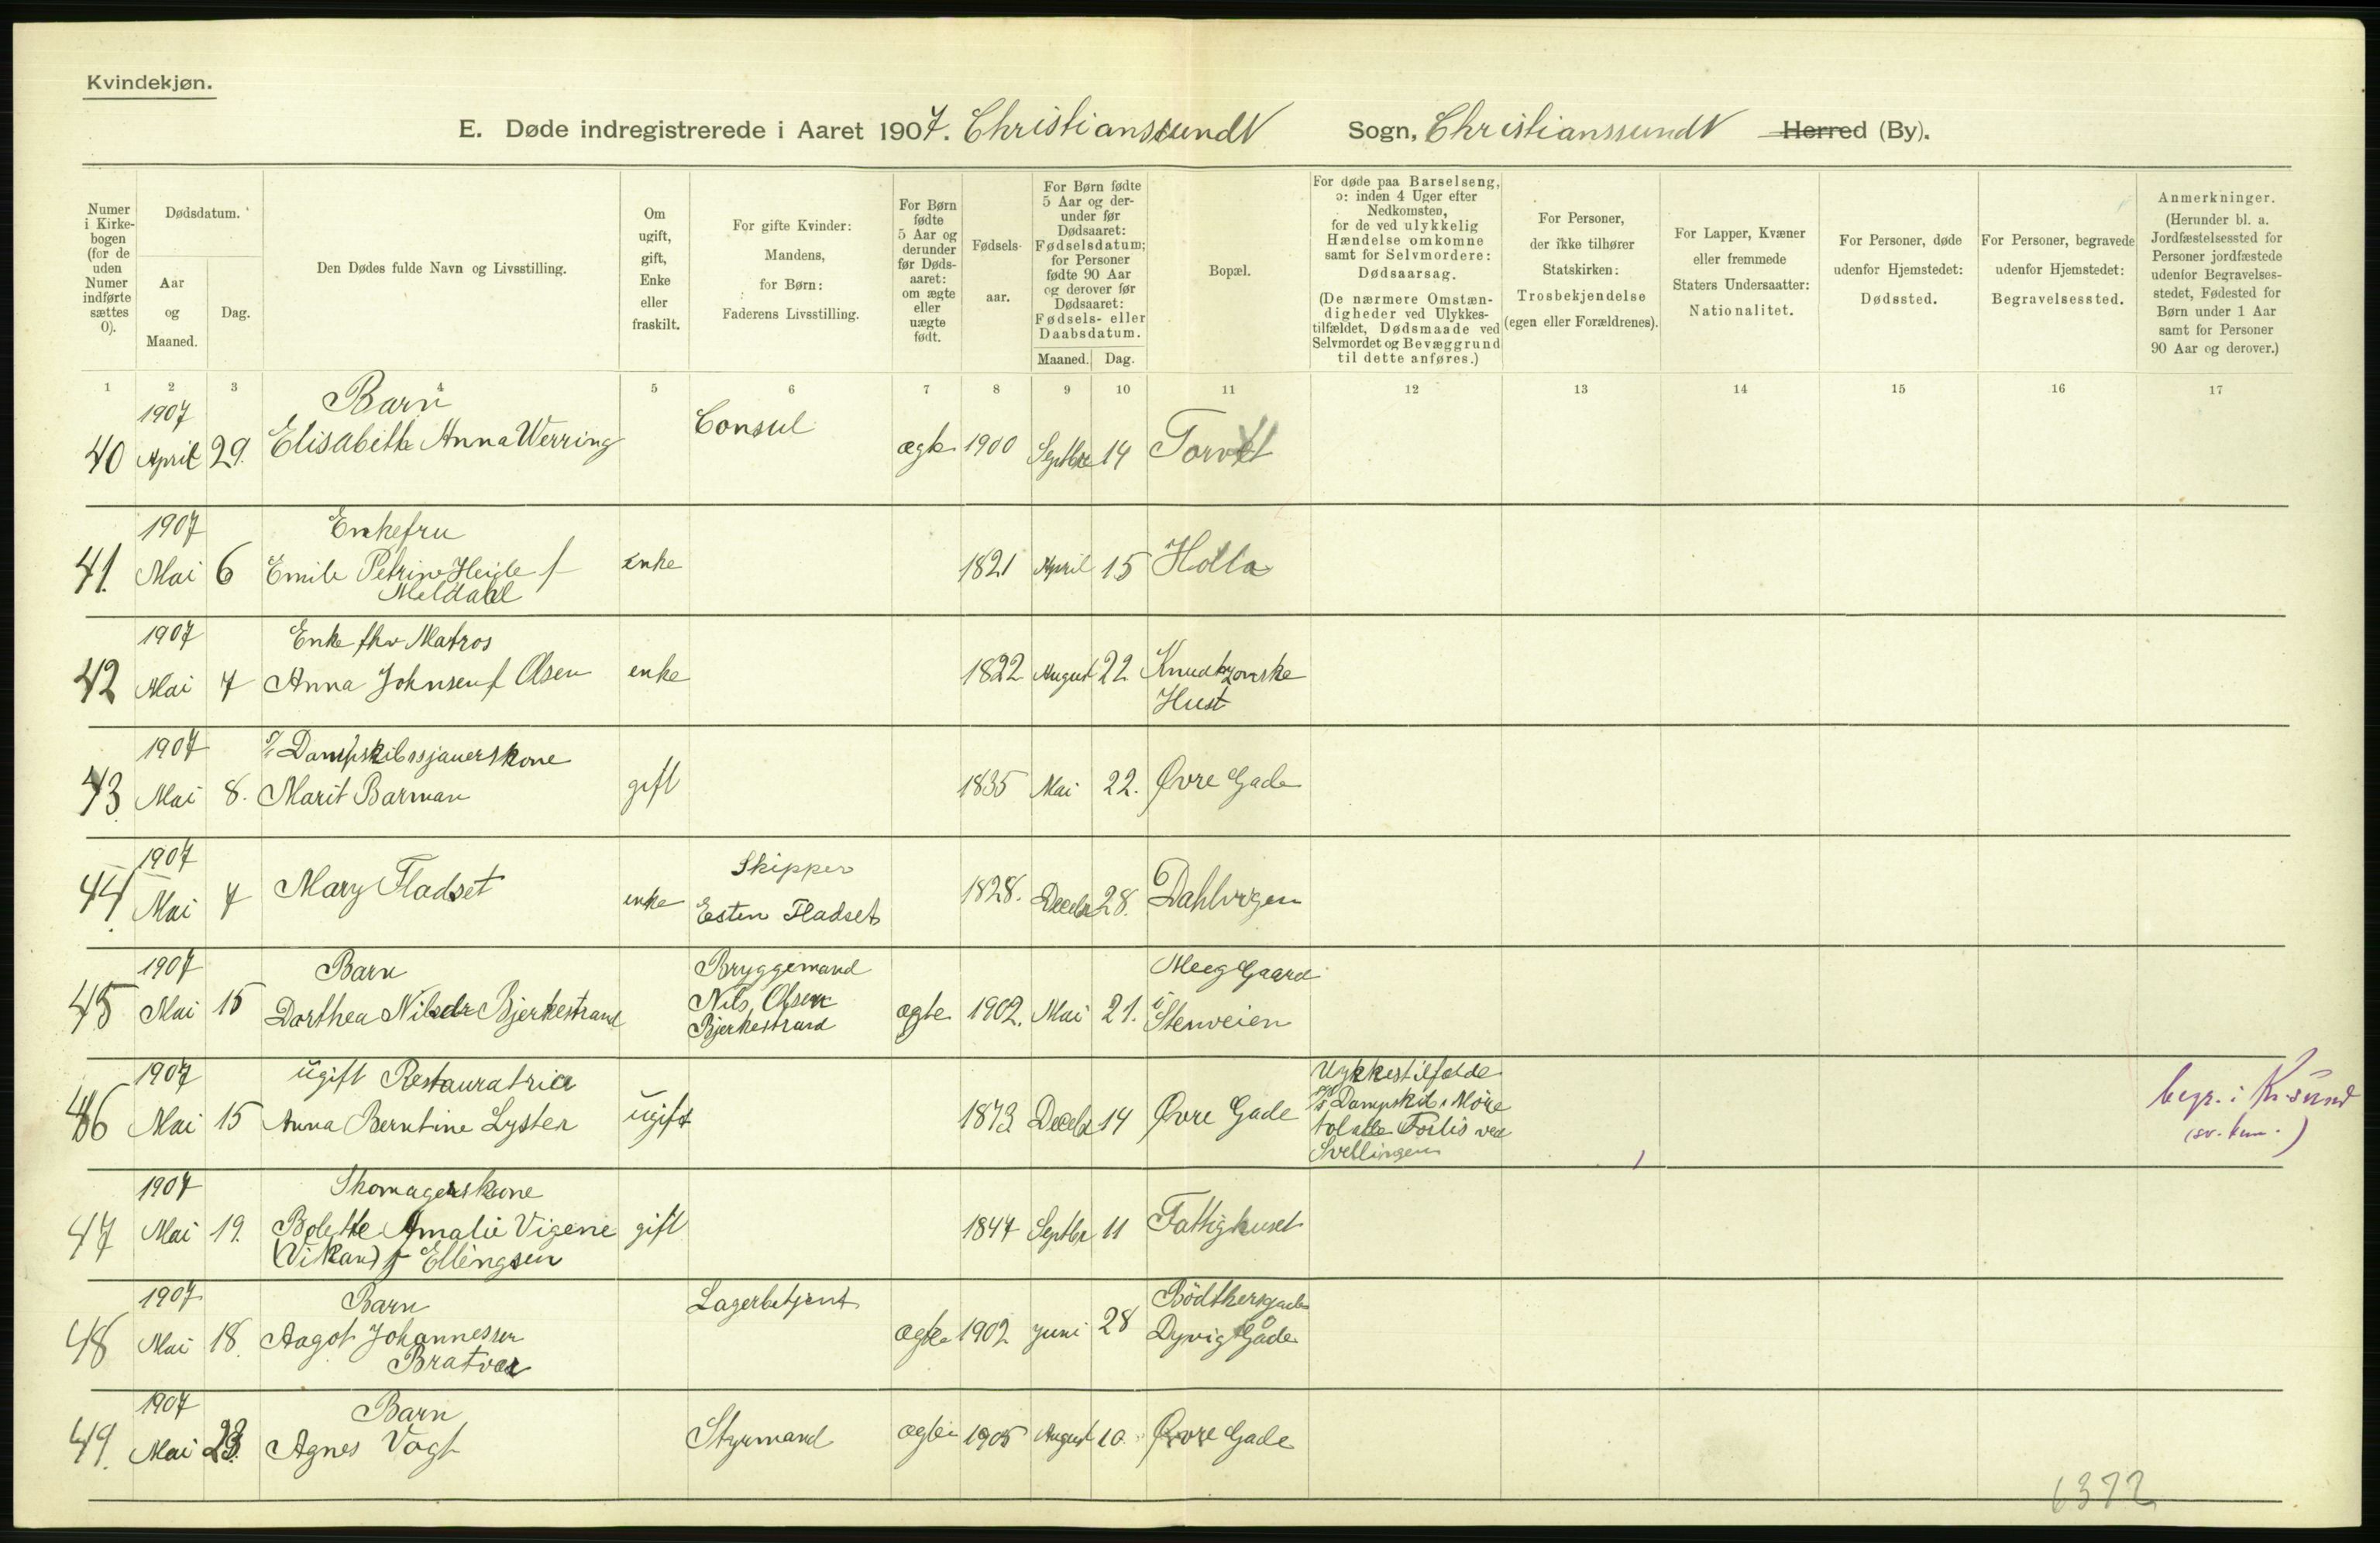 Kvindekjøn.
E. Døde indregistrerede i Aaret 1907. Christianssund N Sogn, Christianssund N Herred (By).
Numer i Kirkebogen (for de uden Numer indførte sættes 0).
Dødsdatum.
Aar og Maaned.
Dag.
Den Dødes fulde Navn og Livsstilling.
Om ugift, gift, Enke eller fraskilt.
For gifte Kvinder: Mandens, for Børn: Faderens Livsstilling.
For Børn fødte 5 Aar og derunder før Dødsaaret: om ægte eller uægte født.
Fødselsaar.
For Børn fødte 5 Aar og derunder før Dødsaaret: Fødselsdatum; for Personer fødte 90 Aar og derover før Dødsaaret: Fødsels- eller Daabsdatum.
Maaned. Dag.
Bopæl.
For døde paa Barselseng, ɔ: inden 4 Uger efter Nedkomsten, for de ved ulykkelig Hændelse omkomne samt for Selvmordere: Dødsaarsag.
(De nærmere Omstændigheder ved Ulykkestilfældet, Dødsmaade ved Selvmordet og Bevæggrund til dette anføres.)
For Personer, der ikke tilhører Statskirken: Trosbekjendelse (egen eller Forældrenes).
For Lapper, Kvæner eller fremmede Staters Undersaatter: Nationalitet.
For Personer, døde udenfor Hjemstedet: Dødssted.
For Personer, begravede udenfor Hjemstedet: Begravelsessted.
Anmerkninger. (Herunder bl. a. Jordfæstelsessted for Personer jordfæstede udenfor Begravelsesstedet, Fødested for Børn under 1 Aar samt for Personer 90 Aar og derover.)
1 2 3 4 5 6 7 8 9 10 11 12 13 14 15 16 17
1907 Barn Consul
40 April 29. Elisabeth Anna Werring ægte 1900 Septbr 14 Torvet
1907 Enkefru
41. Mai 6 Emile Petrine Heide f enke 1821 April 15 Holla
Meldahl
1907 Enke fhv Matros
42 Mai 7 Anna Johnsen f Olsen enke 1822 August 22 Knudtzonske
Hust
1907 Dampskibssjauerskone
43. Mai 8. Marit Barman gift 1835 Mai 22. Øvre Gade
1907 Skipper
44. Mai 7 Mary Fladset enke Esten Fladset 1828. Decebr 28. Dahlvegen
1907 Barn Bryggemand Meeg Gaard
45 Mai 15 Dorthea Nilsdr Bjerkestrand Nils Olsen ægte 1902. Mai 21. i Stenveien
Bjerkestrand
1907 ugift Restauratrice Ulykkestilfælde
46 Mai 15 Anna Berntine Lyster ugift 1873 Decebr 14 Øvre Gade Dampskib Möre
Fortis ved
Svellingen
begr. i Kr.sund
1907 Skomagerskone
47 Mai 19. Bolette Amalie Vigene gift 1847 Septbr 11 Fattighuset
(Vikan) f Ellingsen
1907 Barn Lagerbetjent Bödtkergade
48 Mai 18. Aagot Johannessen ægte 1902 Juni 28 Dyrvig Gade
Bratvær
1907 Barn
49. Mai 23. Agnes Vogt Styrmand ægte 1905 August 10. Øvre Gade
6372